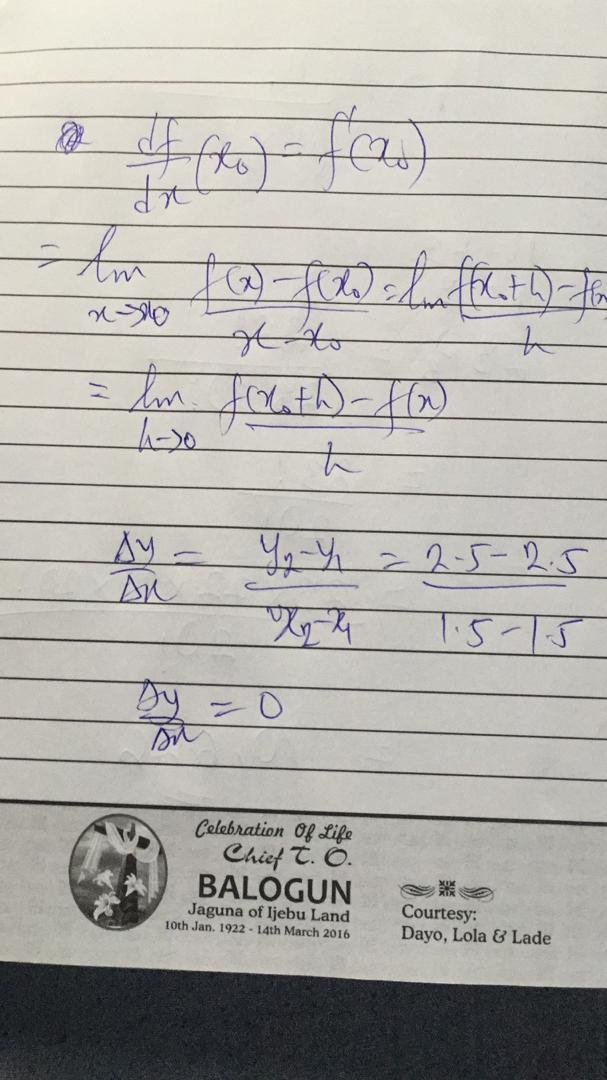 df/dx (x₀) = f'(x₀)
= lim x→x₀ f(x) - f(x₀) / x - x₀ = lim f(x₀+h) - f(x / h
= lim h→0 f(x₀+h) - f(x) / h
Δy/Δx = y₂-y₁ / x₂-x₁ = 2.5-2.5 / 1.5-1.5
Δy/Δx = 0
Celebration Of Life
Chief T. O.
BALOGUN
Jaguna of Ijebu Land
10th Jan. 1922 - 14th March 2016
Courtesy:
Dayo, Lola & Lade